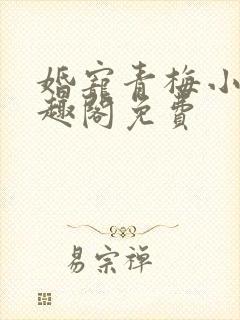 婚宠青梅小
趣阁免费
易宗禅